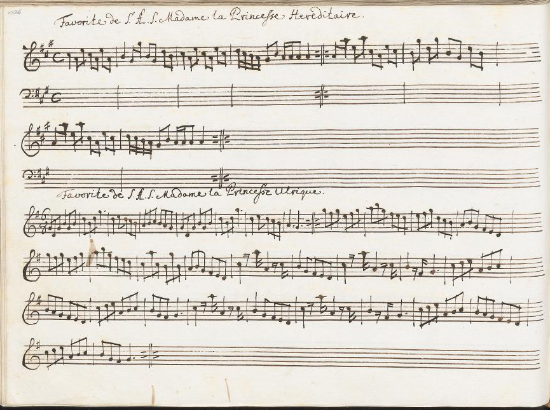 Favorite de S. A. S. Madame la Princesse Hereditaire.
Favorite de S. A. S. Madame la Princesse Ulrique.